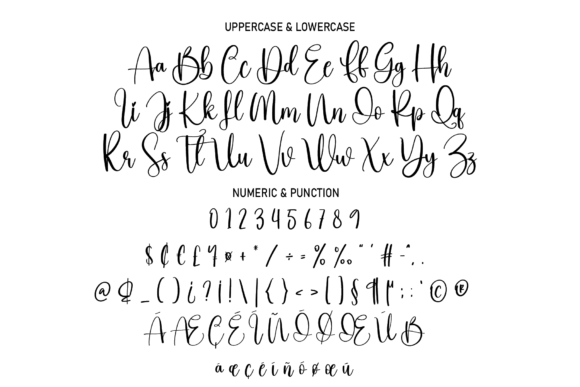 UPPERCASE & LOWERCASE
Aa Bb Cc Dd Ee Ff Gg Hh
Ii Jj Kk Ll Mm Nn Oo Pp Qq
Rr Ss Tt Uu Vv Ww Xx Yy Zz
NUMERIC & PUNCTION
0 1 2 3 4 5 6 7 8 9
$ ¢ € £ + * / ÷ = % ‰ " ' # - ~ , .
@ & _ ( ) ¿ ? ¡ ! \ | { } < > [ ] § ¶ : ; ' © ®
Á Æ Ç É Í Ñ Ó Ø Œ Ú ß
á æ ç é í ñ ó ø œ ú